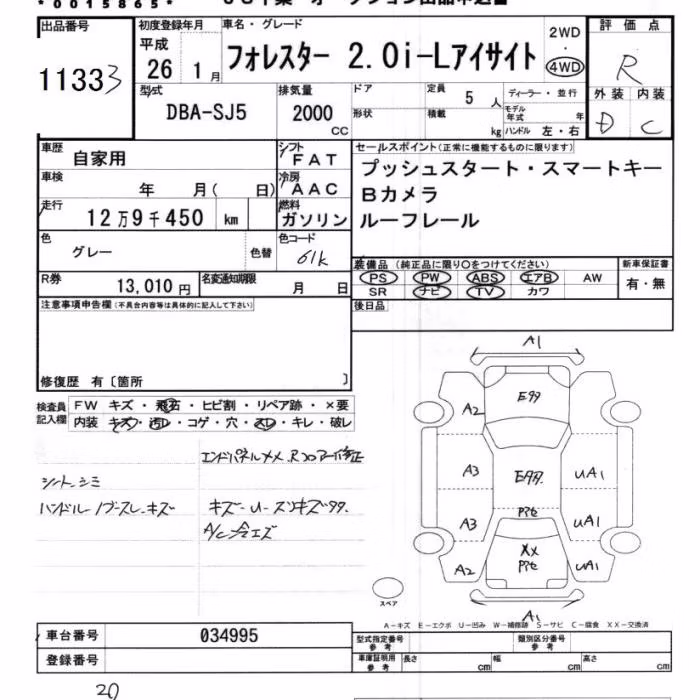 *0015865*
出品番号
11333
初度登録年月
平成
26 1月
車名・グレード
フォレスター 2.0i-Lアイサイト
2WD
・
4WD
評価点
R
外装 内装
D C
型式
DBA-SJ5
排気量
2000
cc
ドア
形状
定員
5 人
積載
kg
ディーラー・並行
モデル年式 年
ハンドル 左・右
車歴
自家用
シフト
FAT
車検
年 月( 日)
冷房
AAC
走行
12万9千450 km
燃料
ガソリン
セールスポイント(正常に機能するものに限ります)
プッシュスタート・スマートキー
Bカメラ
ルーフレール
色
グレー
色替
色コード
61k
R券
13,010円
名変通知期限
月 日
装備品 (純正品に限り○をつけてください)
PS PW ABS エアB AW
SR ナビ TV カワ
新車保証書
有・無
後日品
注意事項申告欄(不具合内容等は具体的に記入して下さい)
修復歴 有〔箇所 〕
検査員
記入欄
FW キズ・飛石・ヒビ割・リペア跡・×要
内装 キズ・汚レ・コゲ・穴・スレ・キレ・破レ
シートシミ
A1
A2
A3
A3
A2
UA1
UA1
UA1
XX
A1
スペア
A-キズ E-エクボ U-凹み W-補修跡 S-サビ C-腐食 XX-交換済
車台番号
034995
登録番号
型式指定番号
参考
類別区分番号
参考
車庫証明用
参考
長さ cm 幅 cm 高さ cm
20